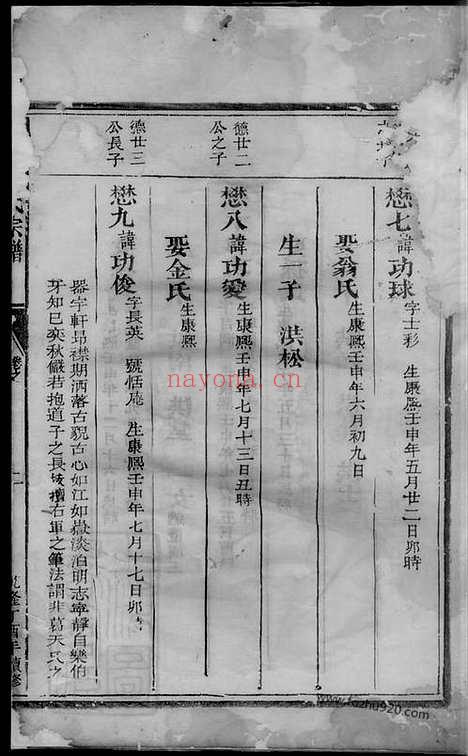 懋七諱功球 字士彩 生康熙壬申年五月廿二日卯時
娶翁氏 生康熙壬申年六月初九日
生一子 洪松
德廿二
公之子
懋八諱功變 生康熙壬申年七月十三日丑時
娶金氏 生康熙
德廿三
公長子
懋九諱功俊 字長英 號恬菴 生康熙壬申年七月十七日卯時
器宇軒昂襟期洒落古貌古心如江如嶽淡泊明志寧靜自樂伯
牙知已奕秋儼若抱道子之長 右軍之筆法謂非葛天氏之
氏宗譜
乾隆丁酉年續修
nayona.cn
www.kazhu920.com